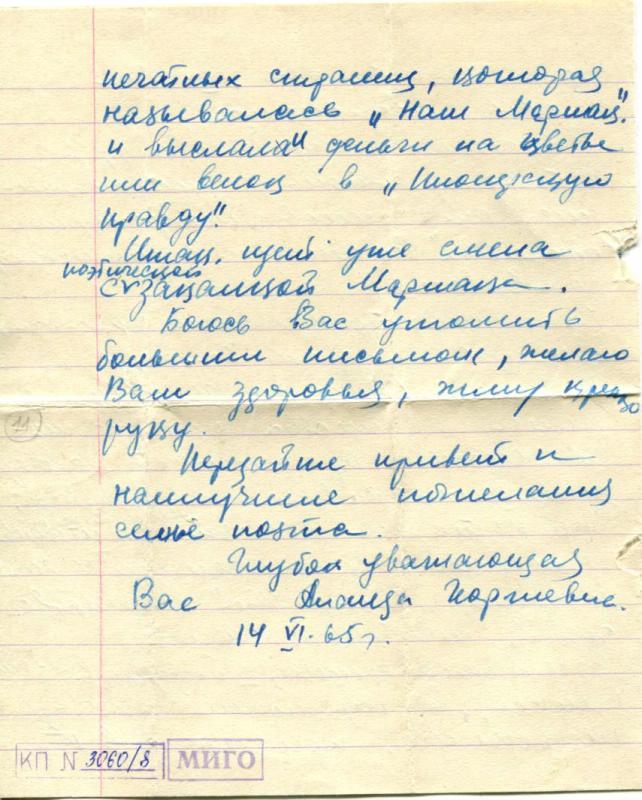 печатных страниц, которая
называлась „Наш Маршак".
и выслала деньги на цветы
или венок в „Пионерскую
правду".
Итак, идет уже смена
поэтической
с закалкой Маршака.
Боюсь Вас утомить
большим письмом, желаю
Вам здоровья, жму крепко
руку.
Передайте привет и
наилучшие пожелания
семье поэта.
Глубоко уважающая
Вас
14 VI. 65 г.
11
КП N 3060/8 МИГО